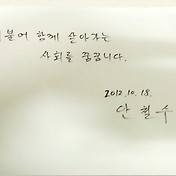 더불어 함께 살아가는
사회를 꿈꿉니다.
2012. 10. 18.
안 철 수